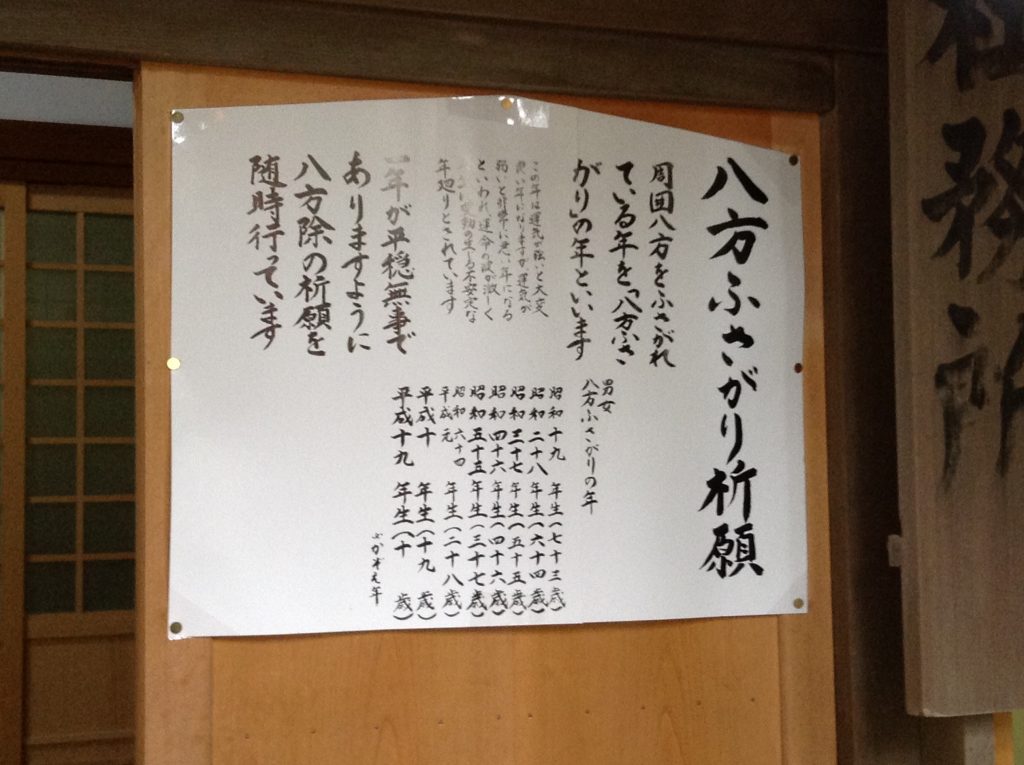 八方ふさがり祈願
周囲八方をふさがれ
ている年を「八方ふさ
がり」の年といいます
この年は運気が強いと大変
良い年になりますが運気が
弱いと非常に悪い年になる
といわれ運命の波が激しく
変動の生じる不安定な
年廻りとされています
一年が平穏無事で
ありますように
八方除の祈願を
随時行っています
男女
八方ふさがりの年
昭和十九 年生(七十三歳)
昭和二十八 年生(六十四歳)
昭和三十七 年生(五十五歳)
昭和四十六 年生(四十六歳)
昭和五十五 年生(三十七歳)
昭和六十四
平成元 年生(二十八歳)
平成十 年生(十九 歳)
平成十九 年生(十 歳)
かぞえ年
社務所